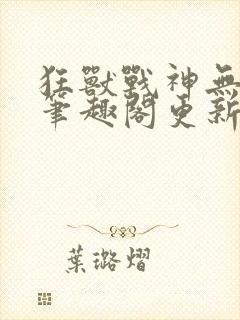 狂獸戰神無
筆趣閣更新
葉璐熠